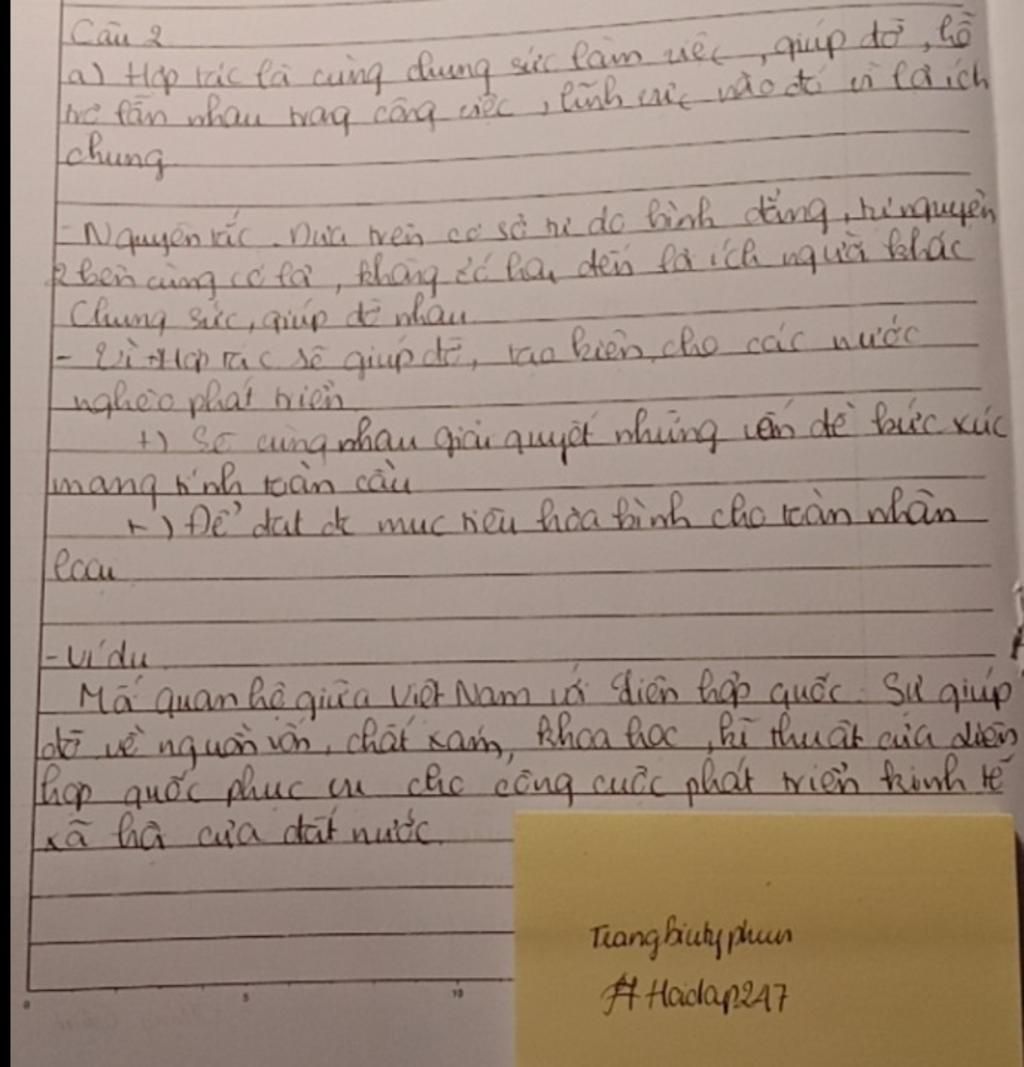 Câu 2
a) Hợp tác là cùng chung sức làm việc, giúp đỡ, hỗ
trợ lẫn nhau trog công việc, lĩnh vực nào đó vì lợi ích
chung
- Nguyên tắc. Dựa trên cơ sở tự do bình đẳng, tự nguyện
2 bên cùng có lợi, không có hại đến lợi ích người khác
Chung sức, giúp đỡ nhau
- Vì +) Hợp tác sẽ giúp đỡ, tạo kiện, cho các nước
nghèo phát triển
+) Sẽ cùng nhau giải quyết những vấn đề bức xúc
mang tính toàn cầu
+) Để đạt đc mục tiêu hòa bình cho toàn nhân
loại
- Ví dụ
Mố quan hệ giữa Việt Nam với liên hợp quốc. Sự giúp
đỡ về nguồn vốn, chất xám, khoa học, kĩ thuật của liên
hợp quốc phục vụ cho công cuộc phát triển kinh tế
xã hộ của đất nước.
Trangbiutyphun
# Hoidap247
0 5 10